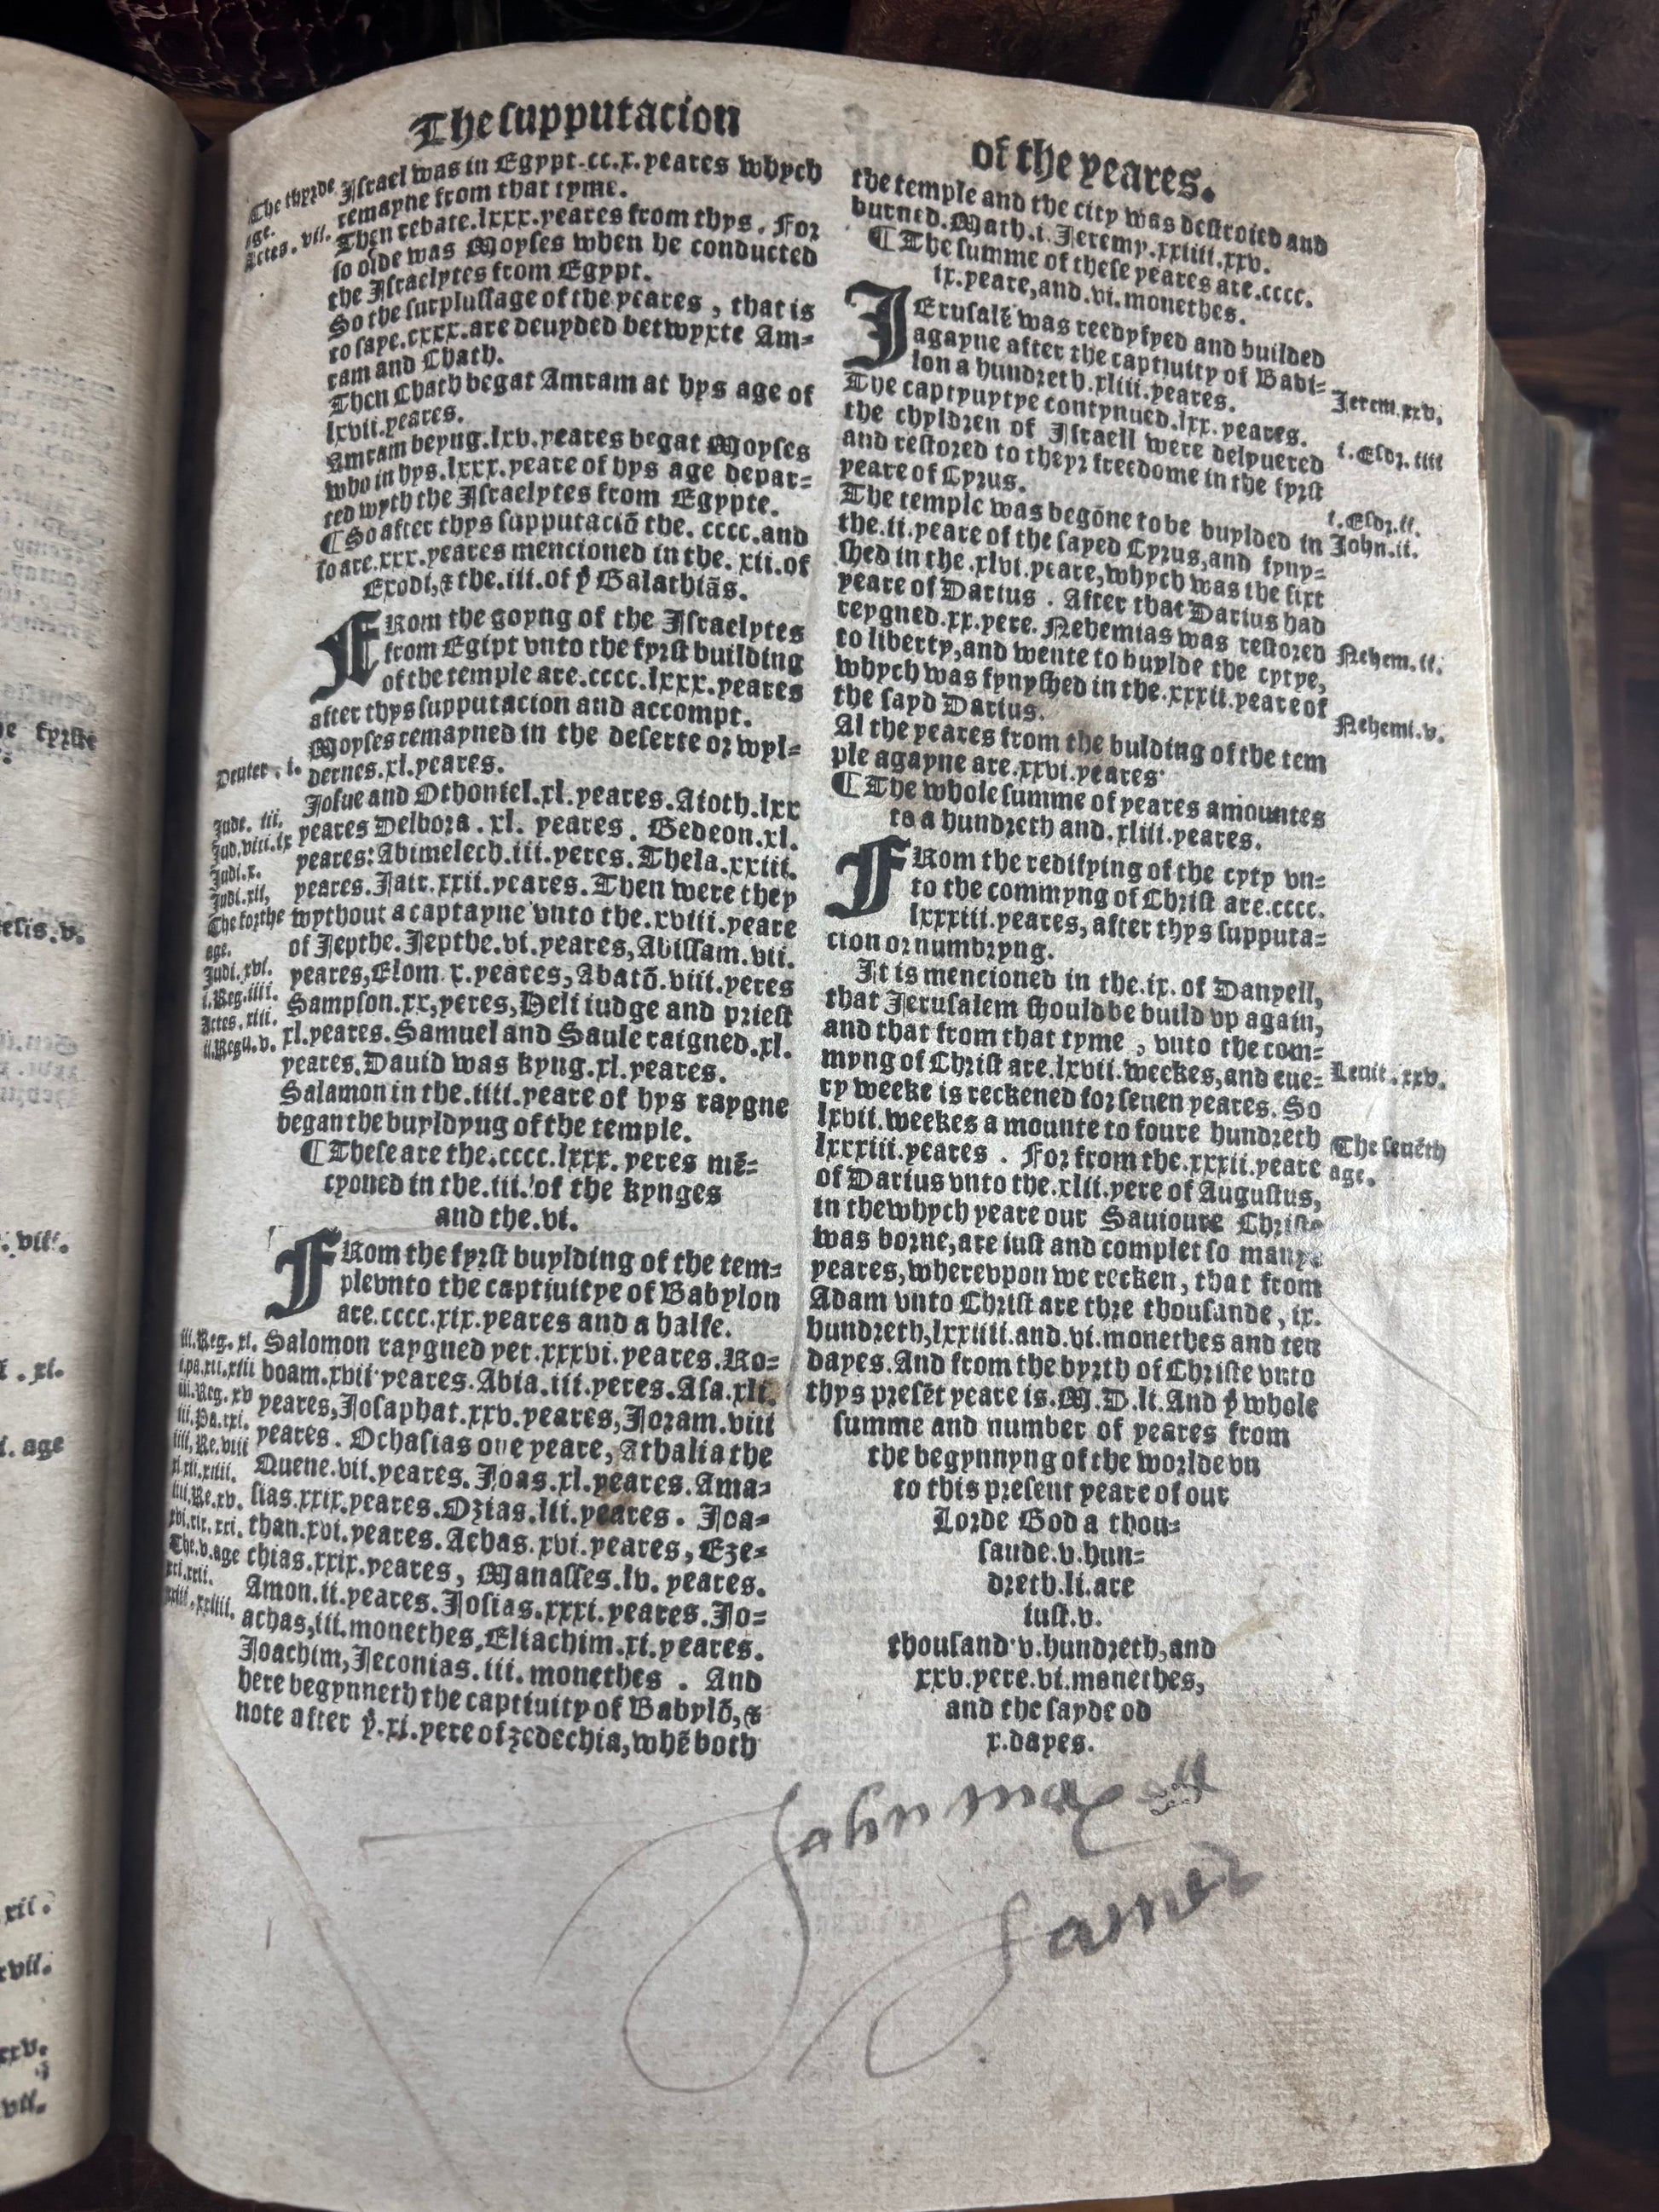 The supputacion
The thyrde
age.
Actes. vii.
Israel was in Egypt.cc.x.yeares whych
remayne from that tyme.
Then rebate.lxxx.yeares from thys. For
so olde was Moyses when he conducted
the Israelytes from Egypt.
So the surplussage of the yeares, that is
to saye.cxxx.are deuyded betwyxte Am=
ram and Chath.
Then Chath begat Amram at hys age of
lxvii.yeares.
Amram beyng.lxv.yeares begat Moyses
who in hys.lxxx.yeare of hys age depar=
ted wyth the Israelytes from Egypte.
¶So after thys supputaciō the. cccc.and
so are.xxx.yeares mencioned in the. xii.of
Exodi,& the.iii.of yͤ Galathiās.
FRom the goyng of the Israelytes
from Egipt vnto the fyrst building
of the temple are.cccc.lxxx.yeares
after thys supputacion and accompt.
Moyses remayned in the deserte or wyl=
Deuter. i. dernes.xl.yeares.
Josue and Othoniel.xl.yeares.Aioth.lxx
Jude. iii. yeares Delbora.xl. yeares. Gedeon.xl.
Jud.viii.ix yeares:Abimelech.iii.yeres.Thela.xxiii.
Judi.x. yeares.Jair.xxii.yeares.Then were they
Judi.xii, wythout a captayne vnto the.xviii.yeare
The forthe of Jepthe.Jepthe.vi.yeares,Abissam.vii.
age. yeares,Elom.x.yeares,Abatō.viii.yeres
Judi.xvi. Sampson.xx,yeres,Heli iudge and priest
i.Reg.iiii. xl.yeares.Samuel and Saule raigned.xl.
Actes.xiii. yeares.Dauid was kyng.xl.yeares.
ii.Regū.v. Salamon in the.iiii.yeare of hys raygne
began the buyldyng of the temple.
¶These are the.cccc.lxxx. yeres mē=
cyoned in the.iii. of the kynges
and the.vi.
FRom the fyrst buylding of the tem=
ple vnto the captiuitye of Babylon
are.cccc.xix.yeares and a halfe.
iii.Reg. xi. Salomon raygned yet.xxxvi.yeares.Ro=
i.pa.xii.xiii boam.xvii yeares.Abia.iii.yeres.Asa.xli.
iii.Reg. xv yeares,Josaphat.xxv.yeares,Joram.viii
iii.Pa.xxi. yeares. Ochasias one yeare, Athalia the
iiii.Re.viii Quene.vii.yeares.Joas.xl.yeares.Ama=
xi.xii.xiiii. sias.xxix.yeares.Ozias.lii.yeares. Joa=
iiii.Re.xv. than.xvi.yeares.Achas.xvi.yeares, Eze=
xvi.xix.xxi. chias.xxix.yeares, Manasses.lv. yeares.
The.v.age Amon.ii.yeares.Josias.xxxi.yeares.Jo=
xxi.xxii. achas,iii.monethes,Eliachim.xi.yeares.
xxiii.xxiiii. Joachim,Jeconias.iii.monethes. And
here begynneth the captiuity of Babylō,&
note after yͤ.xi.yere of zedechia,whē both
of the yeares.
the temple and the city was destroied and
burned.Math.i.Jeremy.xxiiii.xxv.
¶The summe of these yeares are.cccc.
ix.yeare,and.vi.monethes.
JErusalē was reedyfyed and builded
agayne after the captiuity of Babi=
lon a hundreth.xliii.yeares.
The captyuytye contynued.lxx.yeares. Jerem.xxv.
the chyldren of Israell were delyuered
and restored to theyr freedome in the fyrst i.Esdr.iiii
yeare of Cyrus.
The temple was begōne to be buylded in i.Esdr.ii.
the.ii.yeare of the sayed Cyrus,and fyny= John.ii.
shed in the.xlvi.yeare,whych was the sixt
yeare of Darius. After that Darius had
reygned.xx.yere. Nehemias was restored
to liberty,and wente to buylde the cytye, Nehem.ii.
whych was fynyshed in the.xxxii.yeare of
the sayd Darius. Nehemi.v.
Al the yeares from the bulding of the tem
ple agayne are.xxvi.yeares
¶The whole summe of yeares amountes
to a hundreth and.xliii.yeares.
FRom the redifying of the cyty vn=
to the commyng of Christ are.cccc.
lxxxiii.yeares, after thys supputa=
cion or numbryng.
It is mencioned in the.ix. of Danyell,
that Jerusalem should be build vp again,
and that from that tyme, vnto the com=
myng of Christ are.lxvii.weekes,and eue= Leuit.xxv.
ry weeke is reckened for seuen yeares. So
lxvii.weekes a mounte to foure hundreth
lxxxiii.yeares. For from the.xxxii.yeare The seuēth
of Darius vnto the.xlii.yere of Augustus, age.
in the whych yeare our Sauioure Christe
was borne,are iust and complet so manye
yeares,wherevpon we recken, that from
Adam vnto Christ are thre thousande, ix.
hundreth,lxxiiii.and.vi.monethes and ten
dayes.And from the byrth of Christe vnto
thys presēt yeare is.M.D.li.And yͤ whole
summe and number of yeares from
the begynnyng of the worlde vn
to this present yeare of our
Lorde God a thou=
sande.v.hun=
dreth.li.are
iust.v.
thousand v.hundreth,and
xxv.yere.vi.monethes,
and the sayde od
x.dayes.
James
John maxell